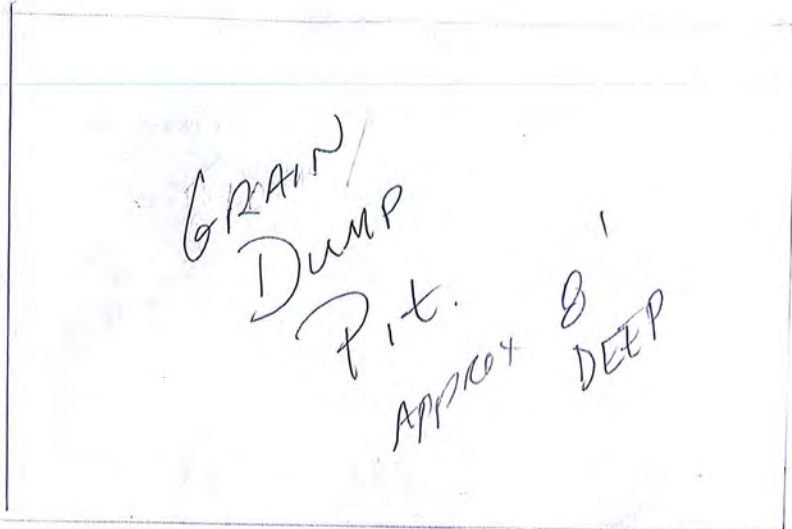 GRAIN
DUMP
Pit.
APPROX 8'
DEEP